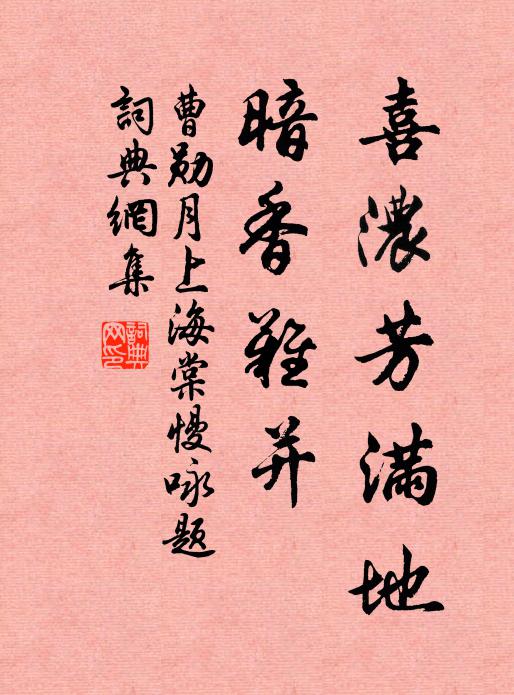 喜濃芳滿地
暗香難并
曹勛月上海棠慢咏題
詞典網集
詞典網印